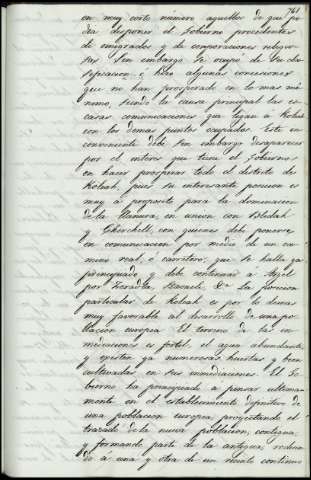 761
en muy corto número aquellos de que po-
dia disponer el Gobierno procedentes
de emigrados y de corporaciones religio-
sas. Sin embargo se ocupó de su cla-
sificacion é hizo algunas concesiones
que no han prosperado en lo mas mí-
nimo, siendo la causa principal las es-
casas comunicaciones que ligan á Koleah
con los demas puntos ocupados. Este in-
conveniente debe sin embargo desaparecer
por el interes que tiene el Gobierno
en hacer prosperar todo el distrito de
Koleah, pues su interesante posicion es
muy á proposito para la dominacion
de la llanura, en union con Blidah
y Cherchell, con quienes debe ponerse
en comunicacion por medio de un ca-
mino real, ó carretero, que se halla ya
principiado y debe continuar á Argel
por Zeradla, Staoueli, &a. La posicion
particular de Koleah es por lo demas
muy favorable al desarrollo de una po-
blacion europea. El terreno de las in-
mediaciones es fertil, el agua abundante,
y existen ya numerosas huertas y bien
cultivadas en sus inmediaciones. El Go-
bierno ha principiado á pensar ultima-
mente en el establecimiento definitivo de
una poblacion europea, proyectando el
trazado de la nueva poblacion, contigua,
y formando parte de la antigua, rodea-
da á una y otra de un recinto continuo